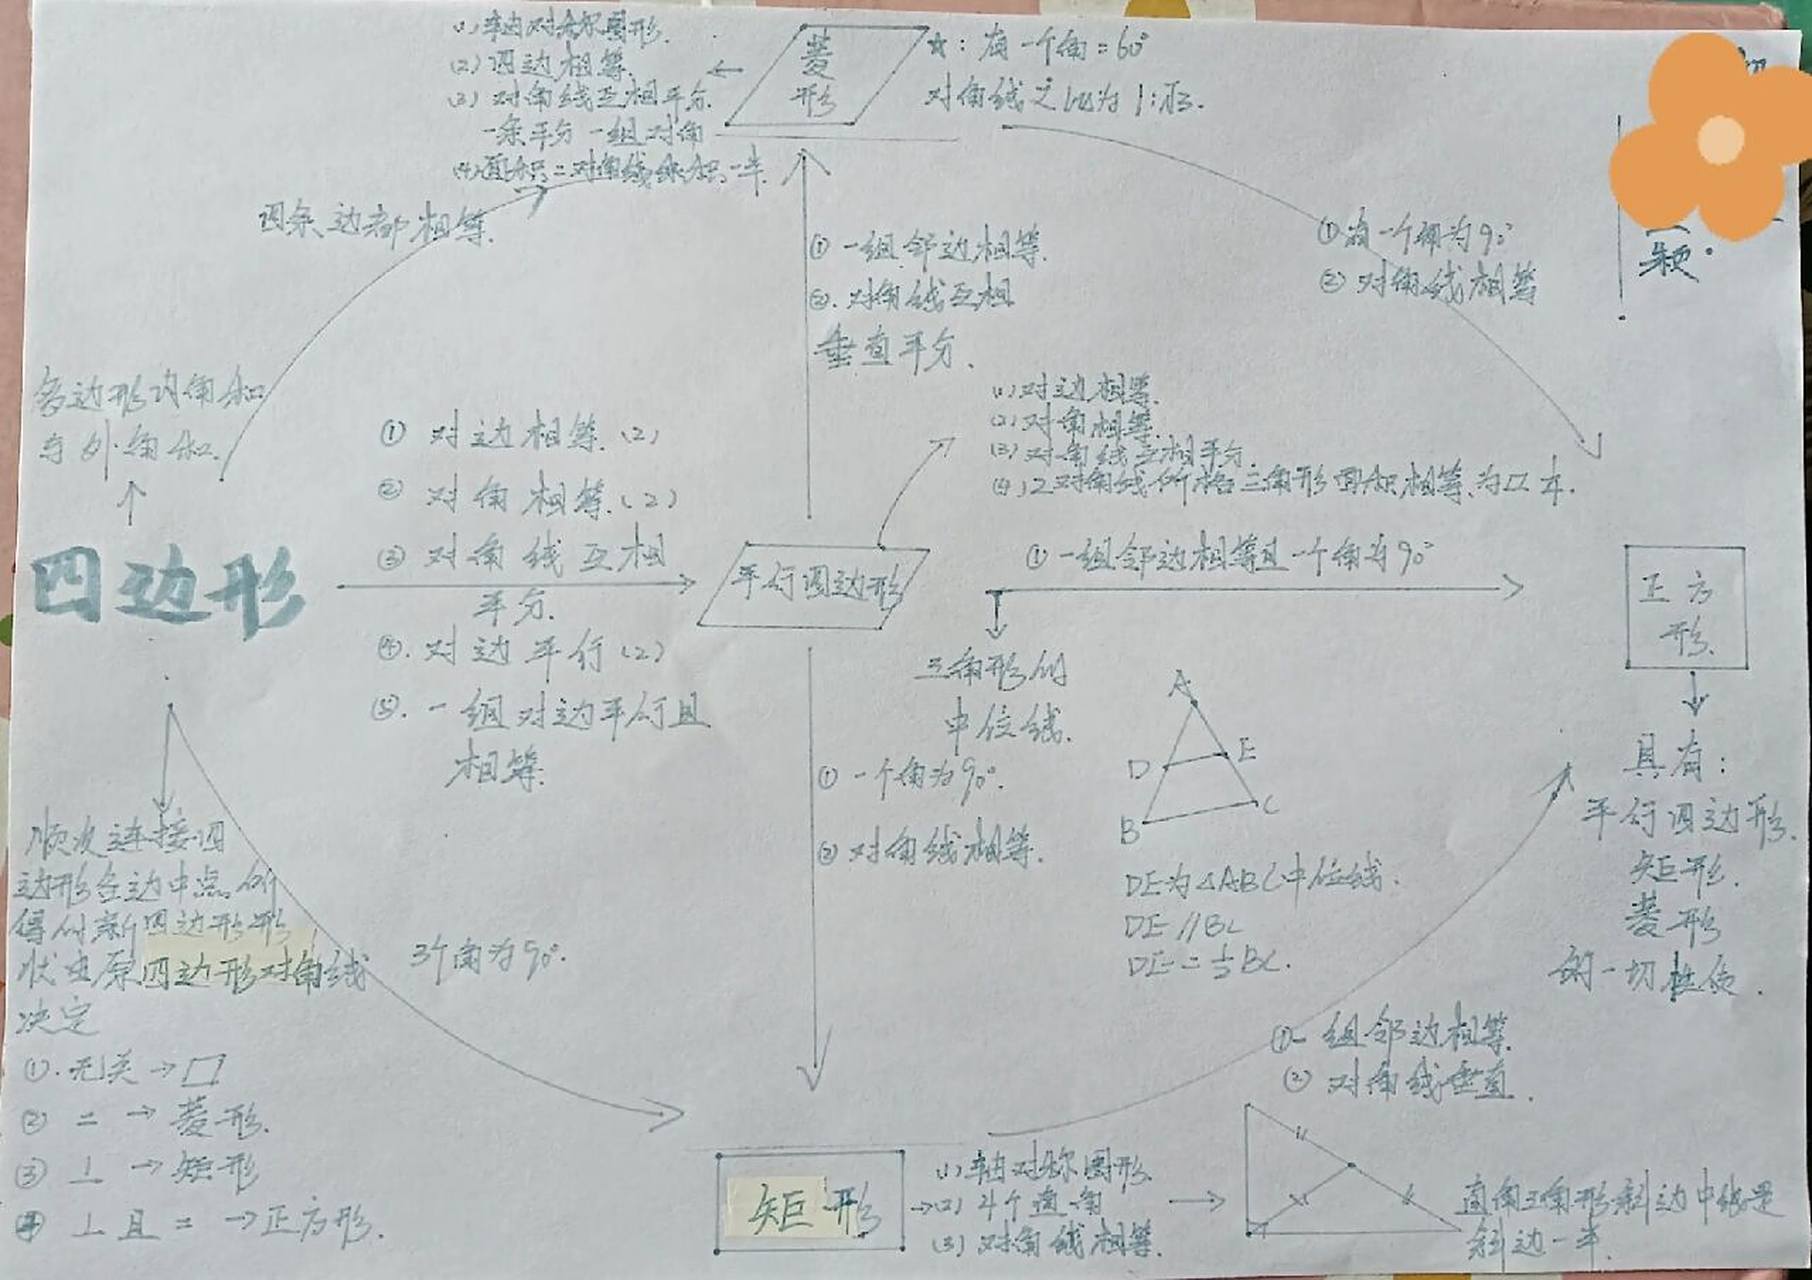 (1)轴对称图形.
(2)四边相等.
(3)对角线互相平分.
一条平分一组对角
(4)面积=对角线乘积一半.
菱
形
☆:有一个角=60°
对角线之比为1:√3.
四条边都相等.
①一组邻边相等.
②.对角线互相
垂直平分.
①有一个角为90°
②对角线相等
颖.
多边形内角和
与外角和.
↑
四边形
①对边相等.(2)
②对角相等.(2)
③对角线互相
平分.
④.对边平行(2)
⑤.一组对边平行且
相等.
平行四边形
(1)对边相等.
(2)对角相等.
(3)对角线互相平分.
(4)2对角线所
三角形面积相等.为
①一组邻边相等且一个角为90°
正方
形.
三角形的
中位线.
A
D E
B C
DE为△ABC中位线.
DE//BC
DE=½BC.
①一个角为90°.
②对角线相等.
具有:
平行四边形.
矩形.
菱形
的一切性质.
顺次连接四
边形各边中点所
得的新四边形形
状由原四边形对角线
决定
①.无关→▱
②=→菱形.
③⊥→矩形
④⊥且=→正方形.
3个角为90°.
①一组邻边相等.
②对角线垂直.
矩形
(1)轴对称图形.
→(2)4个直角
(3)对角线相等.
→
直角三角形斜边中线是
斜边一半.